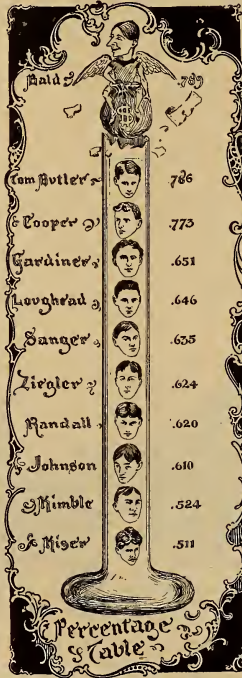 Bald .789
$
Tom Butler .786
Cooper .773
Gardiner .651
Loughead .646
Sanger .635
Ziegler .624
Randall .620
Johnson .610
Kimble .524
Kiser .511
Percentage
Table